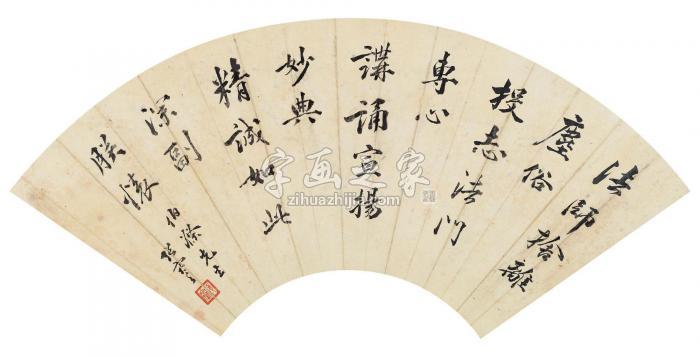 法師捨離
塵俗
投志法門
專心
講誦宣揚
妙典
精誠如此
深副
朕懷
伯滌先生
字画之家
zihuazhijia.com